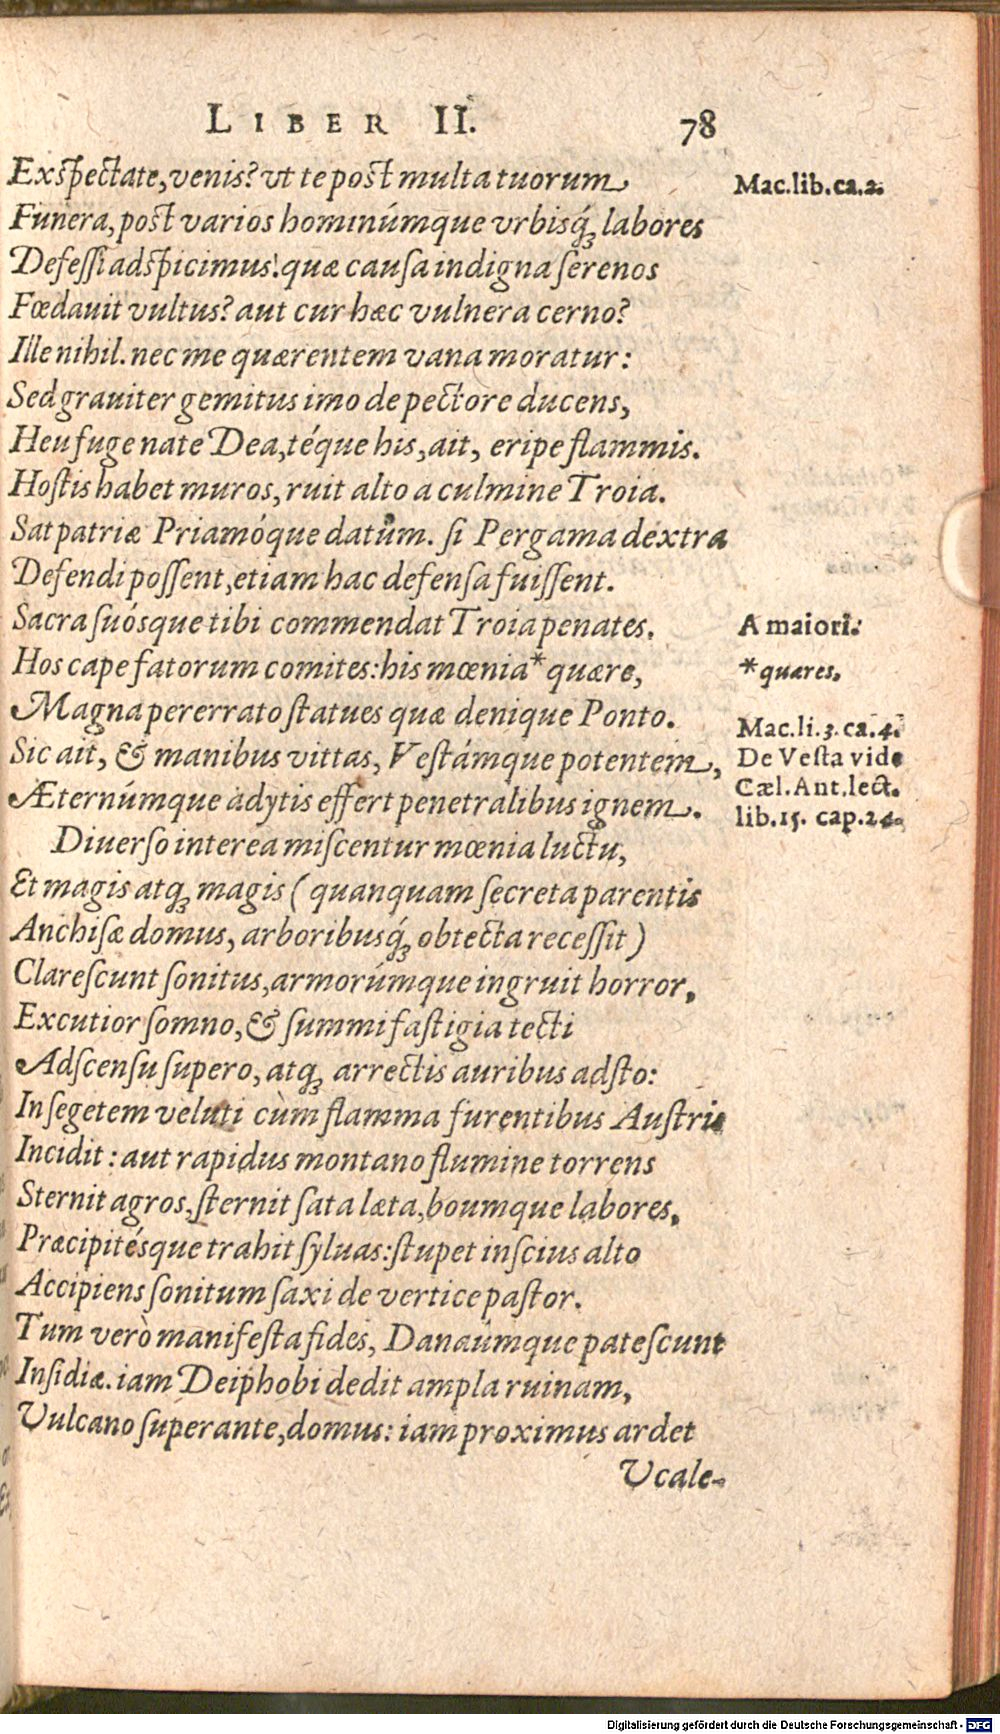 LIBER II. 78
Exspectate, venis? vt te post multa tuorum
Funera, post varios hominúmque vrbisq́ꝫ labores
Defessi adspicimus! quæ causa indigna serenos
Fœdauit vultus? aut cur hæc vulnera cerno?
Ille nihil. nec me quærentem vana moratur:
Sed grauiter gemitus imo de pectore ducens,
Heu fuge nate Dea, téque his, ait, eripe flammis.
Hostis habet muros, ruit alto a culmine Troia.
Sat patriæ Priamóque datum. si Pergama dextra
Defendi possent, etiam hac defensa fuissent.
Sacra suósque tibi commendat Troia penates.
Hos cape fatorum comites: his mœnia * quære,
Magna pererrato statues quæ denique Ponto.
Sic ait, & manibus vittas, Vestámque potentem,
Æternúmque adytis effert penetralibus ignem.
Diuerso interea miscentur mœnia luctu,
Et magis atqꝫ magis (quanquam secreta parentis
Anchisæ domus, arboribusq́ꝫ obtecta recessit)
Clarescunt sonitus, armorúmque ingruit horror,
Excutior somno, & summi fastigia tecti
Adscensu supero, atqꝫ arrectis auribus adsto:
In segetem veluti cùm flamma furentibus Austris
Incidit: aut rapidus montano flumine torrens
Sternit agros, sternit sata læta, boumque labores,
Præcipitésque trahit syluas: stupet inscius alto
Accipiens sonitum saxi de vertice pastor.
Tum verò manifesta fides, Danaúmque patescunt
Insidiæ. iam Deiphobi dedit ampla ruinam,
Vulcano superante, domus: iam proximus ardet
Vcale-
Mac.lib.ca.2.
A maiori.
*quæres.
Mac.li.3.ca.4.
De Vesta vide
Cæl.Ant.lect.
lib.15. cap.24.
Digitalisierung gefördert durch die Deutsche Forschungsgemeinschaft - DFG